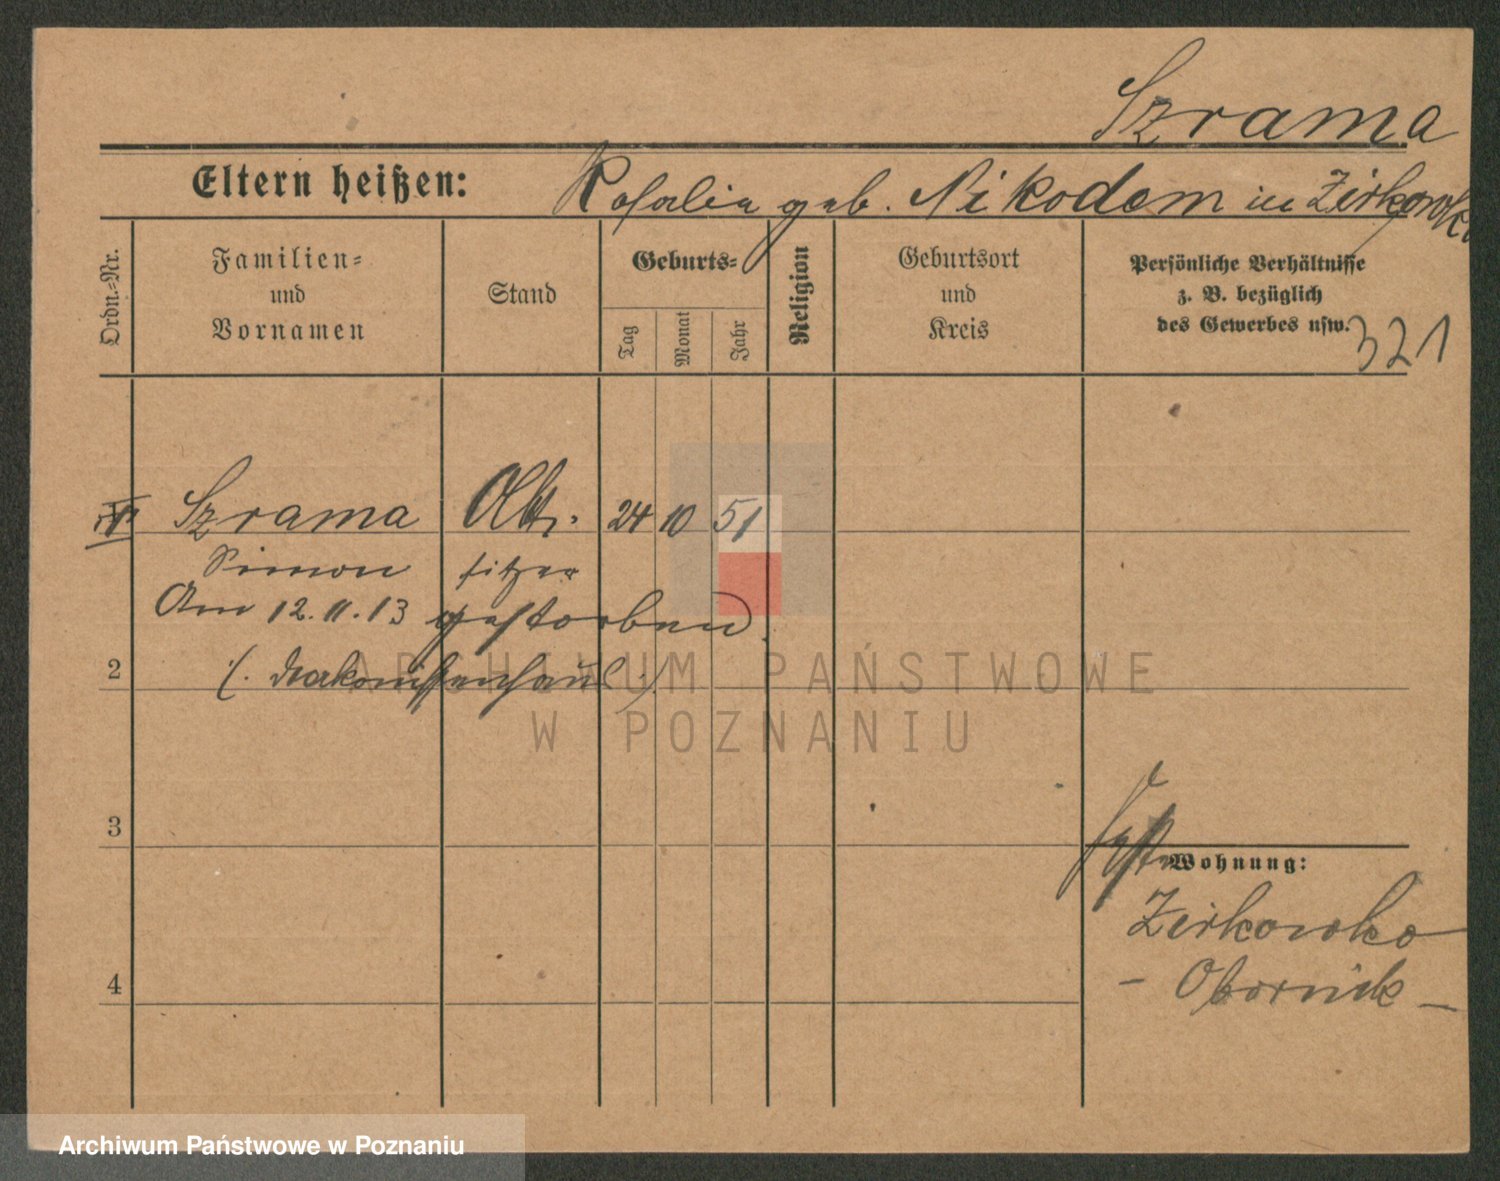 Szrama
Eltern heißen: Rosalia geb. Nikodem in Zirkowko
Ordn.-Nr.
Familien-
und
Vornamen
Stand
Geburts-
Tag
Monat
Jahr
Religion
Geburtsort
und
Kreis
Persönliche Verhältnisse
z. B. bezüglich
des Gewerbes usw.
321
Szrama Alt- 24 10 51
Simon sitzer
Am 12.11.13 gestorben.
2 (. Diakonissenhaus .)
ARCHIWUM PAŃSTWOWE
W POZNANIU
3
Wohnung:
Zirkowko
4
- Obornik -
Archiwum Państwowe w Poznaniu